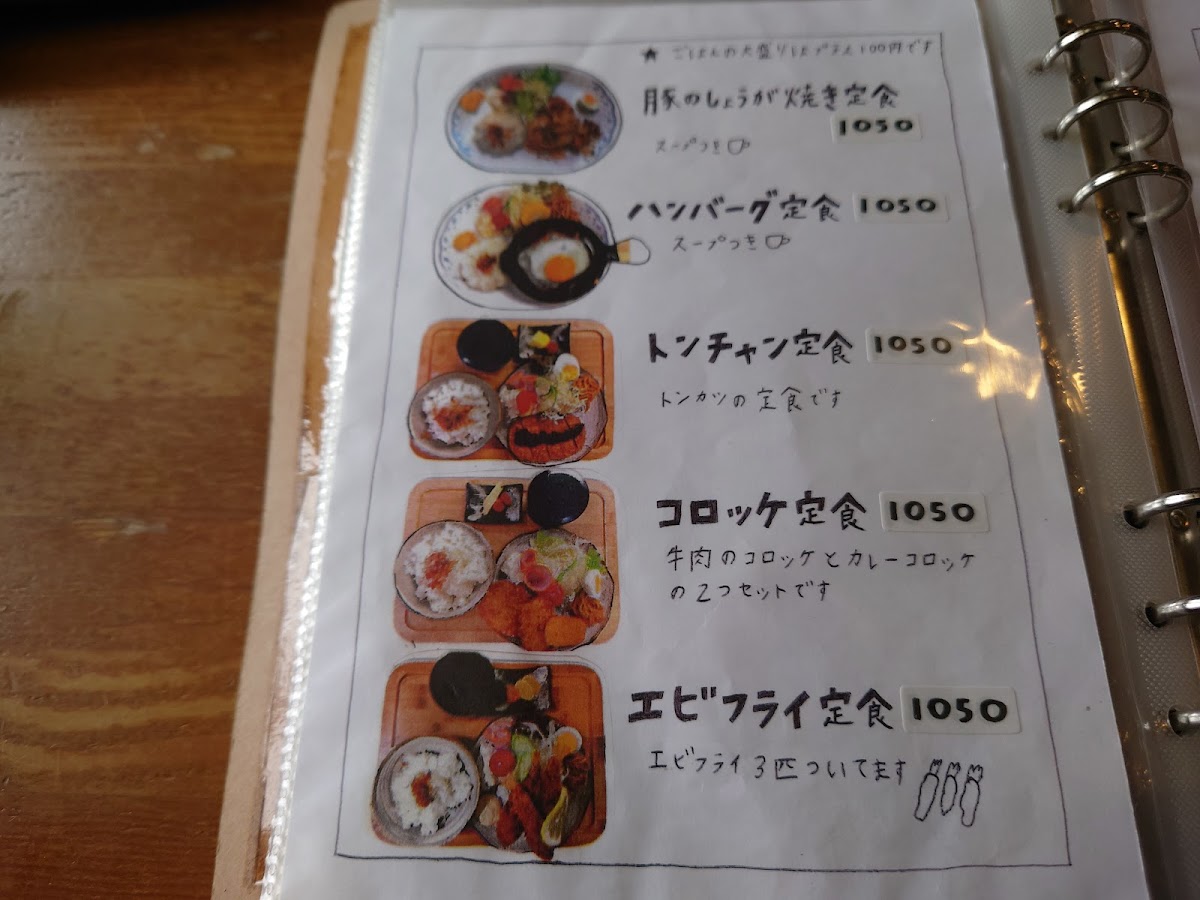 ★ ごはんの大盛りはプラス100円です
豚のしょうが焼き定食
1050
スープつき
ハンバーグ定食 1050
スープつき
トンチャン定食 1050
トンカツの定食です
コロッケ定食 1050
牛肉のコロッケとカレーコロッケ
の2つセットです
エビフライ定食 1050
エビフライ3匹ついてます